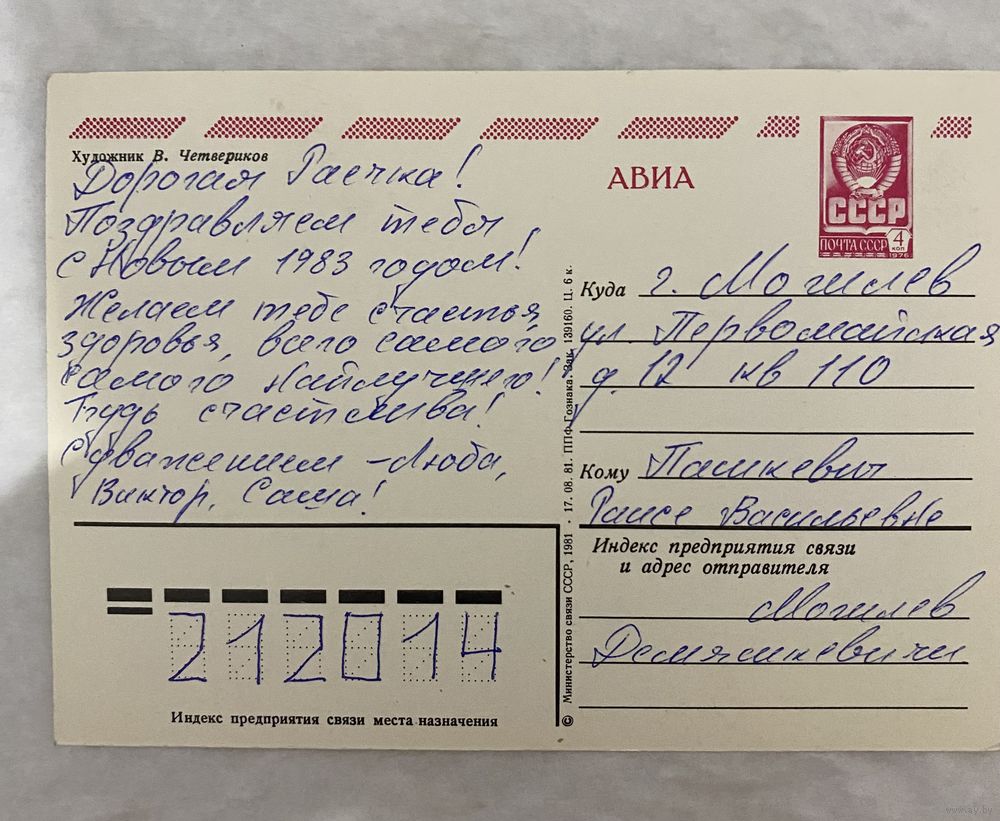 Художник В. Четвериков
Дорогая Раечка!
Поздравляем тебя
с Новым 1983 годом!
Желаем тебе счастья,
здоровья, всего самого
самого наилучшего!
Будь счастлива!
С уважением - Люба,
Виктор, Саша!
АВИА
СССР
ПОЧТА СССР 4 КОП
1976
Куда г. Могилев
ул Первомайская
д. 12 кв 110
Кому Пашкевич
Раисе Васильевне
Индекс предприятия связи
и адрес отправителя
Могилев
Демяшкевичи
212014
Индекс предприятия связи места назначения
© Министерство связи СССР, 1981 · 17. 08. 81. ППФ Гознака. Зак. 139160. Ц. 6 к.
www.ay.by